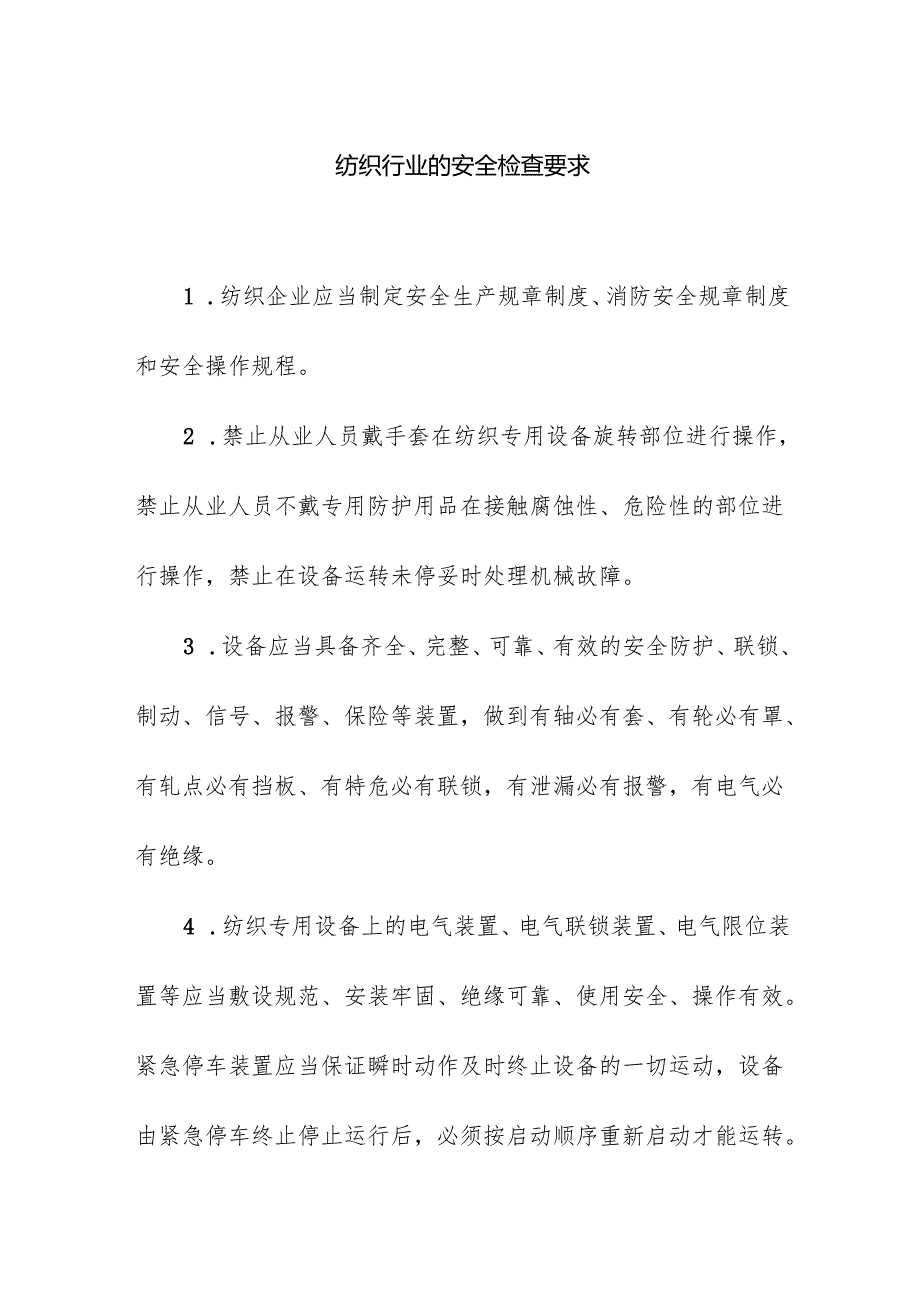 纺织行业的安全检查要求
1 .纺织企业应当制定安全生产规章制度、消防安全规章制度
和安全操作规程。
2 .禁止从业人员戴手套在纺织专用设备旋转部位进行操作，
禁止从业人员不戴专用防护用品在接触腐蚀性、危险性的部位进
行操作，禁止在设备运转未停妥时处理机械故障。
3 .设备应当具备齐全、完整、可靠、有效的安全防护、联锁、
制动、信号、报警、保险等装置，做到有轴必有套、有轮必有罩、
有轧点必有挡板、有特危必有联锁，有泄漏必有报警，有电气必
有绝缘。
4 .纺织专用设备上的电气装置、电气联锁装置、电气限位装
置等应当敷设规范、安装牢固、绝缘可靠、使用安全、操作有效。
紧急停车装置应当保证瞬时动作及时终止设备的一切运动，设备
由紧急停车终止停止运行后，必须按启动顺序重新启动才能运转。